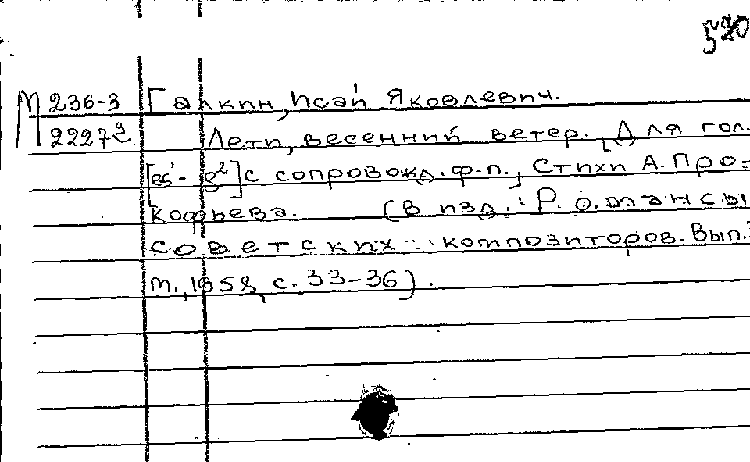 520
М 236-3 Галкин, Исай Яковлевич.
2227 Лети, весенний ветер. [Для гол.
[es¹ - g²] с сопровожд. ф.-п., Стихи А. Про-
кофьева. (В изд.: Романсы
советских композиторов. Вып.
М., 1958, с. 33-36).